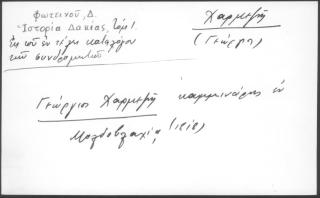 Φωτεινοῦ, Δ.
Ἱστορία Δακίας, τόμ. 1.
ἐκ τοῦ ἐν τέλει καταλόγου
τῶν συνδρομητῶν
Χαρμεζῆ
(Γεώργ.)
Γεώργιος Χαρμεζῆ καμμινάρης ἐν
Μολδοβλαχίᾳ